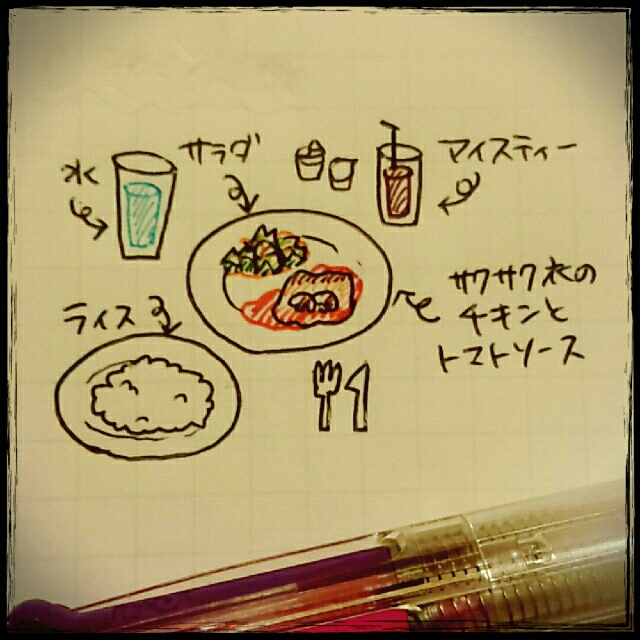 サラダ
水
マイスティー
サクサク衣の
チキンと
トマトソース
ライス